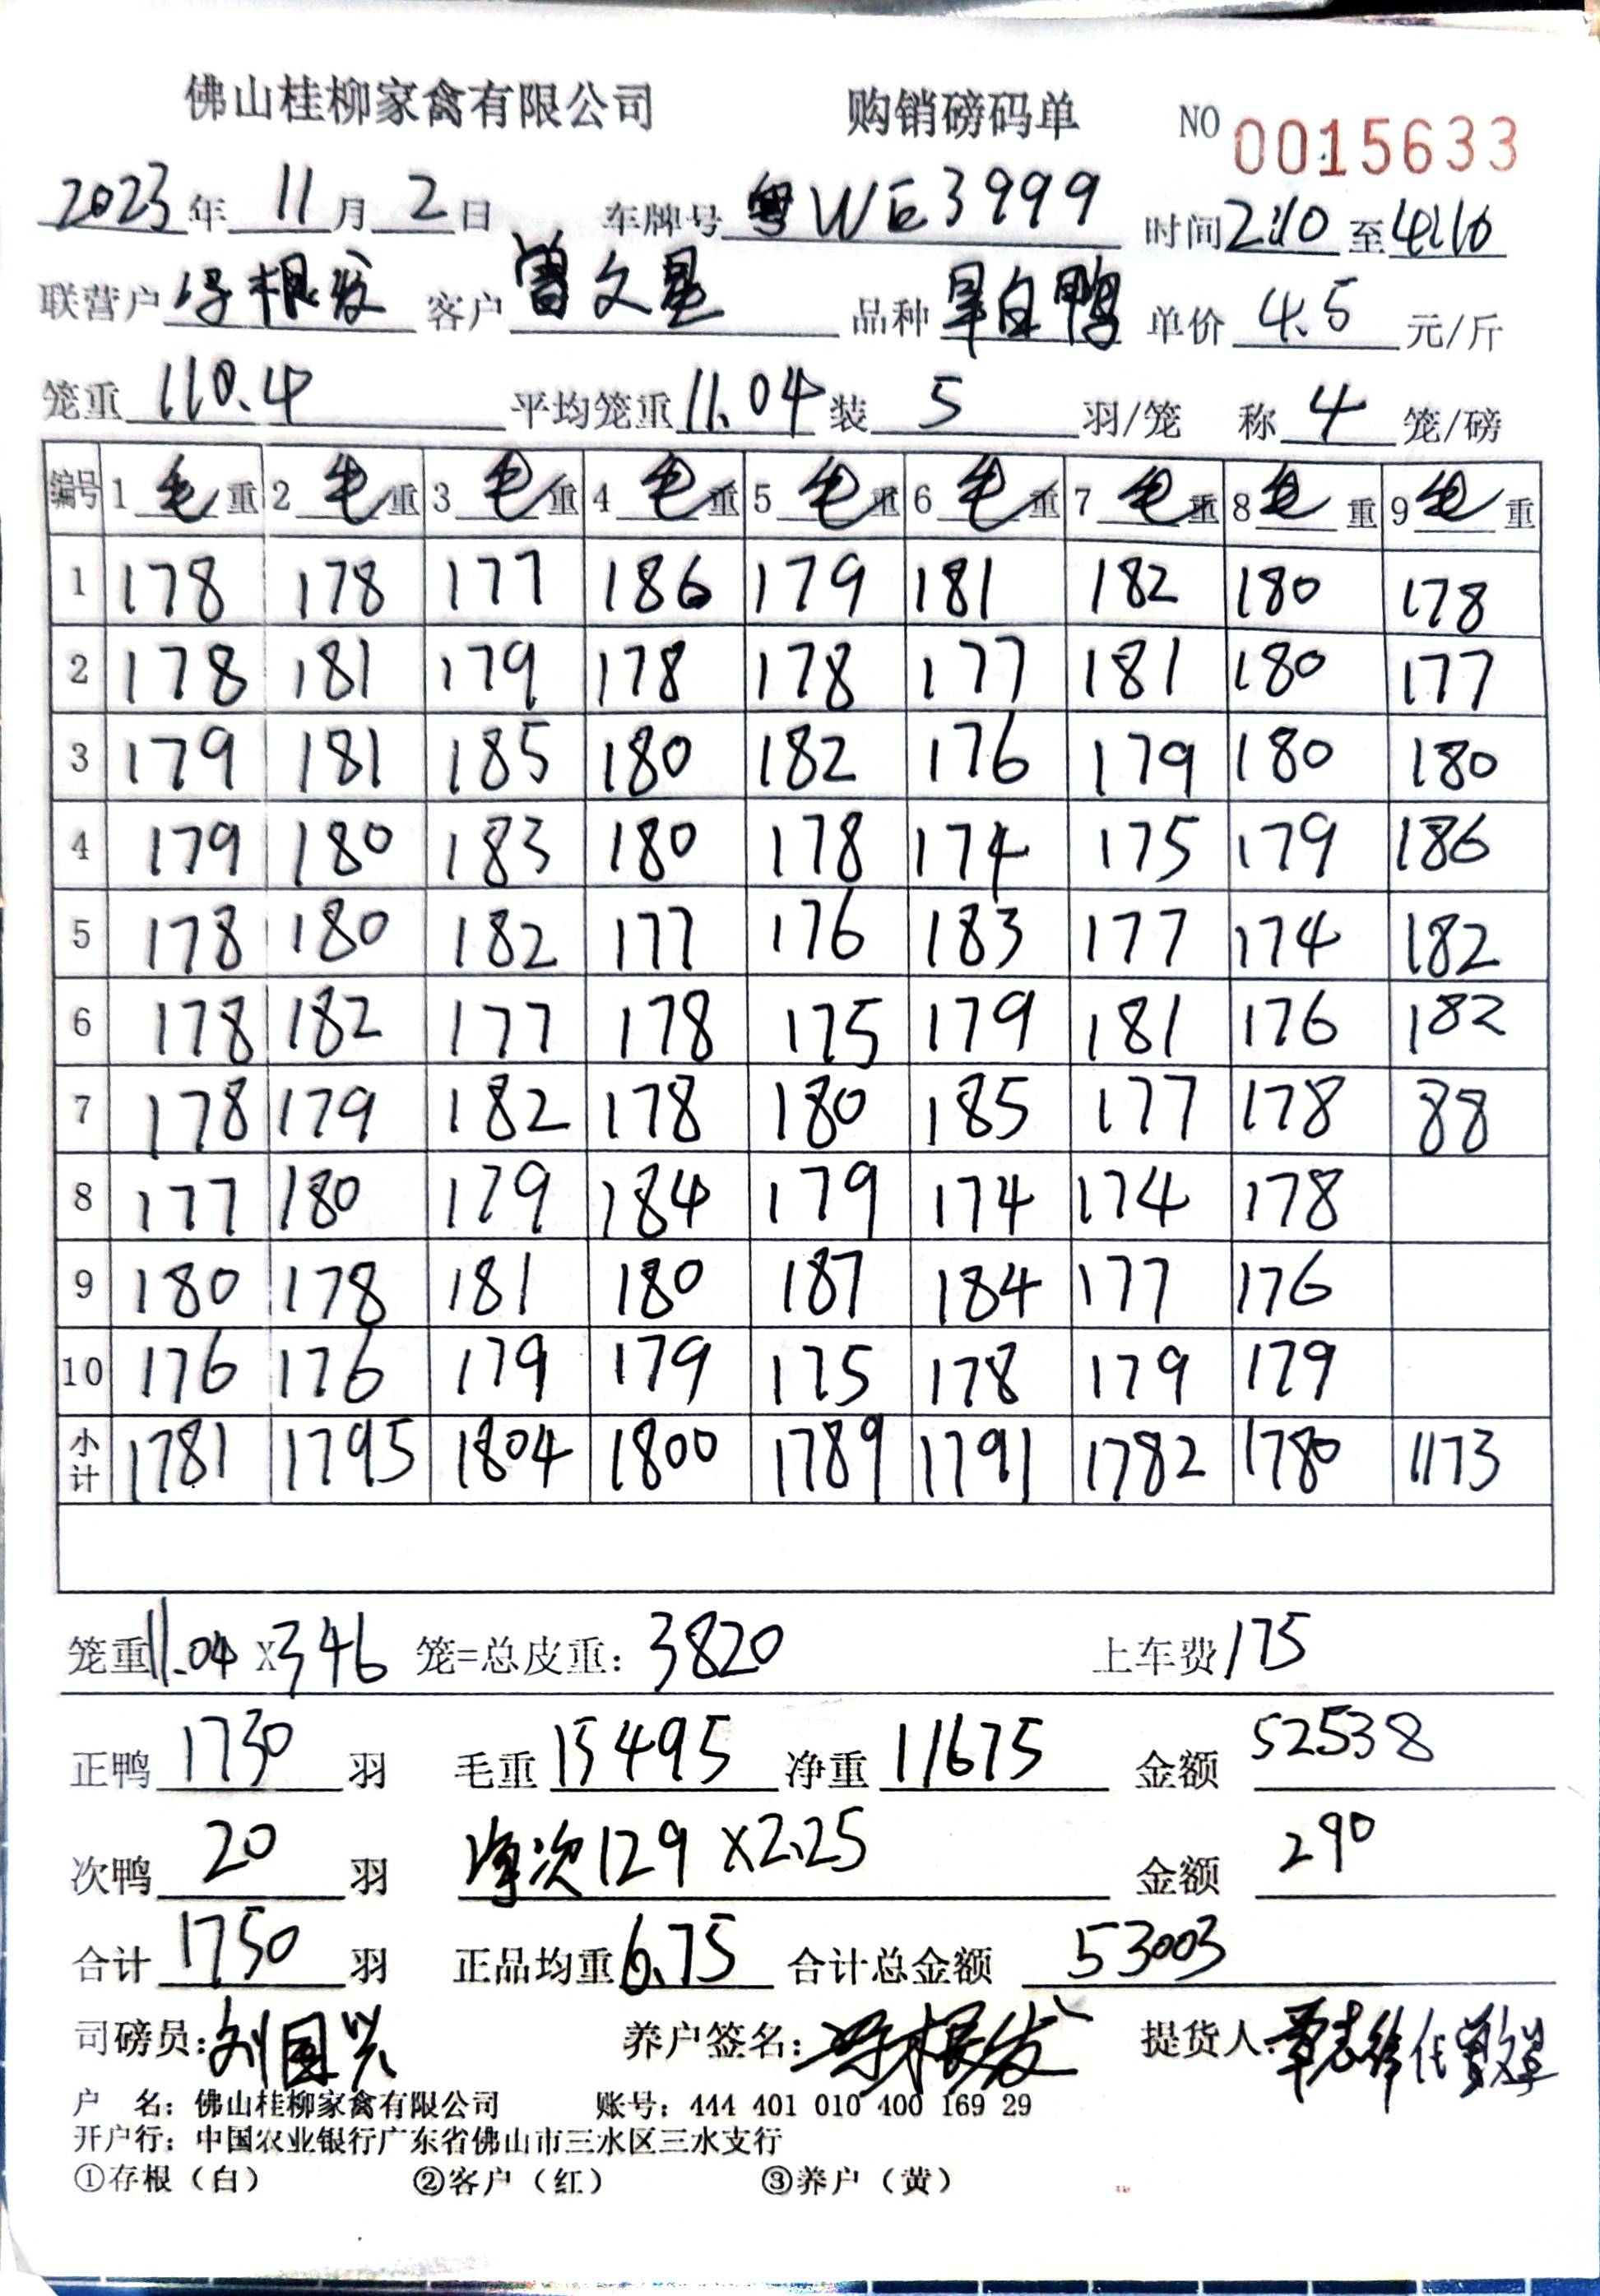 佛山桂柳家禽有限公司 购销磅码单 NO 0015633
2023年 11月 2日 车牌号 粤WE3999 时间 2:10 至 4:10
联营户 冯根发 客户 曾文星 品种 旱白鸭 单价 4.5 元/斤
笼重 110.4 平均笼重 11.04 装 5 羽/笼 称 4 笼/磅
编号 1毛重 2毛重 3毛重 4毛重 5毛重 6毛重 7毛重 8毛重 9毛重
1 178 178 177 186 179 181 182 180 178
2 178 181 179 178 178 177 181 180 177
3 179 181 185 180 182 176 179 180 180
4 179 180 183 180 178 174 175 179 186
5 178 180 182 177 176 183 177 174 182
6 178 182 177 178 175 179 181 176 182
7 178 179 182 178 180 185 177 178 88
8 177 180 179 184 179 174 174 178
9 180 178 181 180 187 184 177 176
10 176 176 179 179 175 178 179 179
小计 1781 1795 1804 1800 1789 1791 1782 1780 1173
笼重11.04 X346 笼=总皮重：3820 上车费175
正鸭 1730 羽 毛重 15495 净重 11675 金额 52538
次鸭 20 羽 净次129 X2.25 金额 290
合计 1750 羽 正品均重 6.75 合计总金额 53003
司磅员：刘国兴 养户签名：冯根发 提货人：
户 名：佛山桂柳家禽有限公司 账号：444 401 010 400 169 29
开户行：中国农业银行广东省佛山市三水区三水支行
①存根（白） ②客户（红） ③养户（黄）